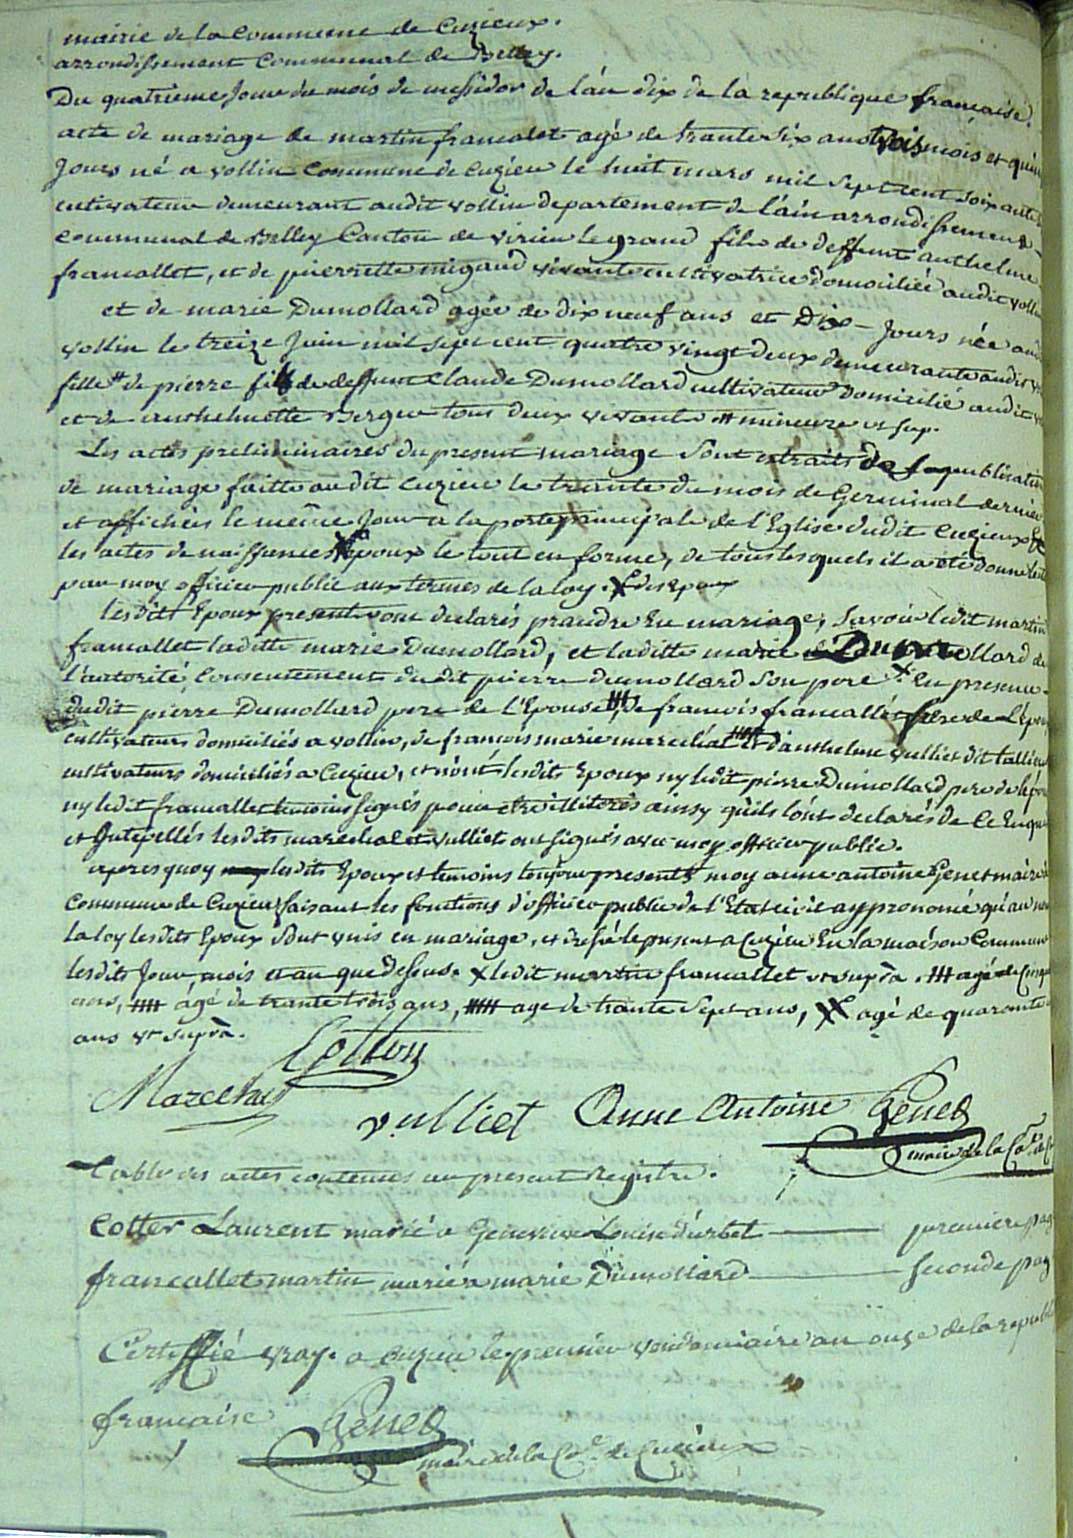 mairie de la Commune de Cuzieux.
arrondissement Communal de Belley.
Du quatrieme Jour du mois de messidor de l'an dix de la republique française.
acte de mariage de martin francalet agé de trante six ans trois mois et quin
Jours né a vollin Commune de Cuzieu le huit mars mil sept cent soixante
cultivateur demeurant audit vollin departement de l'ain arrondissement
communal de Belley Canton de virieu le grand fils de deffunt anthelme
francallet, et de pierrette migaud vivante cultivatrice domiciliée audit vollin
et de marie Dumollard agée de dix neuf ans et Dix Jours née audi
vollin le treize Juin mil sept cent quatre vingt deux demeurante audit
fille de pierre fils de deffunt Claude Dumollard cultivateur domicilié audit
et de anthelmette Berger tous deux vivants # mineure ut sup.
Les actes preliminaires du present mariage Sont extraits de la publication
de mariage faitte audit Cuzieu le trante du mois de Germinal dernier
et affichés le même Jour a la porte principale de l'Eglise dudit Cuzieux
les actes de naissance époux le tout en forme, de tous lesquels il a été donné lect
par moy officier public aux termes de la loy. X des Epoux
lesdits Epoux present vont declarés prandre en mariage, savoir ledit martin
francallet laditte marie Dumollard, et laditte marie Dumollard de
l'autorité, Consentement dudit pierre dumollard son pere X en presence
dudit pierre Dumollard pere de l'Epouse de francois francallet frere de l'épou
cultivateurs domiciliés a vollin, de francois marie marechal et d'anthelme vulliet dit tallieu
cultivateurs domiciliés a Cuzieu, et n'ont lesdits Epoux ny ledit pierre Dumollard pere de l'épou
ny ledit francallet temoins signés pour etre illiterés ainsy qu'ils l'ont declarés de Ce Enquis
et Interpellés lesdits marechal et vulliet ont signés avec moy officier public.
apres quoy lesdits Epoux et temoins toujour presents moy anne antoine Genet maire de
Commune de Cuzieu faisant les fonctions d'officier public de l'Etat civil ay prononcé qu'au nom
la loy lesdits Epoux sont unis en mariage, et dressé le present a Cuzieu En la maison Commune
lesdits Jour, mois et an que dessus. X ledit martin francallet ut supra. agé de Cinqu
ans, agé de trante trois ans, age de trante sept ans, agé de quarante
ans ut supra.
Cotton
Marechal
vulliet Anne Antoine Genet
maire de la Cne de C
table des actes contenues au present Registre.
Cotter Laurent marié a Genevieve Louise d'urbet premiere pag
francallet martin marié a marie Dumollard seconde pag
Certiffié vray. a cuzieu le premier vendemiaire an onze de la republi
francaise
Genet
maire de la Cne de Cuzieux